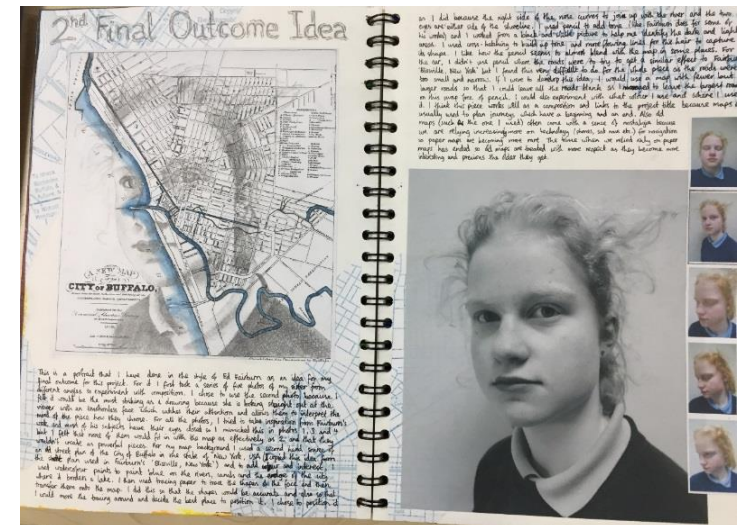 2nd Final Outcome Idea
A NEW MAP
CITY of BUFFALO,
This is a portrait that I have done in the style of Ed Fairburn as an idea for my
final outcome for this project. For it I first took a series of five photos of my sister from
different angles to experiment with composition. I chose to use the second photo because I
felt it would be the most striking as a drawing because she is looking straight out at the
viewer with an emotionless face which catches their attention and allows them to interpret the
mood of the piece how they choose. For all the photos, I tried to take inspiration from Fairburn's
work and most of his subjects have their eyes closed so I mimicked this in photos 1, 3 and 4
but I felt that none of them would fit in with the map as effectively as 2 and that they
wouldn't make as powerful pieces. For my map background I used a second hand
old street plan of the City of Buffalo in the state of New York, USA (I got this idea from
the street plan used in Fairburn's 'Blasville, New York') and to add colour and interest, I
used watercolour paint to paint blue on the rivers, canals and the of the city
where it borders a lake. I then used tracing paper to trace the shapes of the face and then
transfer them onto the map. I did this so that the shapes would be accurate and also so that
I could move the tracing around and decide the best place to position it. I chose to position it
as I did because the right side of the nose curves to join up with the river and the two
eyes are either side of the shoreline. I used pencil to add tone (like Fairburn does for some of
his works) and I worked from a black and white picture to help me identify the dark and light
areas. I used cross-hatching to build up tone and more flowing lines for the hair to capture
its shape. I like how the pencil seems to almost blend with the map in some places. For
the ear, I didn't use pencil where the roads were to try to get a similar effect to Fairburn's
'Blasville, New York' but I found this very difficult to do for the whole piece as the roads were
too small and narrow. If I were to develop this idea, I would use a map with fewer but
larger roads so that I could leave all the roads blank as I managed to leave the largest road
on this map free of pencil. I would also experiment with what other I use and where I use
it. I think this piece works well as a composition and links to the project title because maps are
usually used to plan journeys, which have a beginning and an end. Also old
maps (such as the one I used) often come with a sense of nostalgia because
we are relying increasingly more on technology (phones, sat navs etc.) for navigation
so paper maps are becoming more rare. The times when we relied only on paper
maps has ended so old maps are treated with more respect as they become more
interesting and precious the older they get.